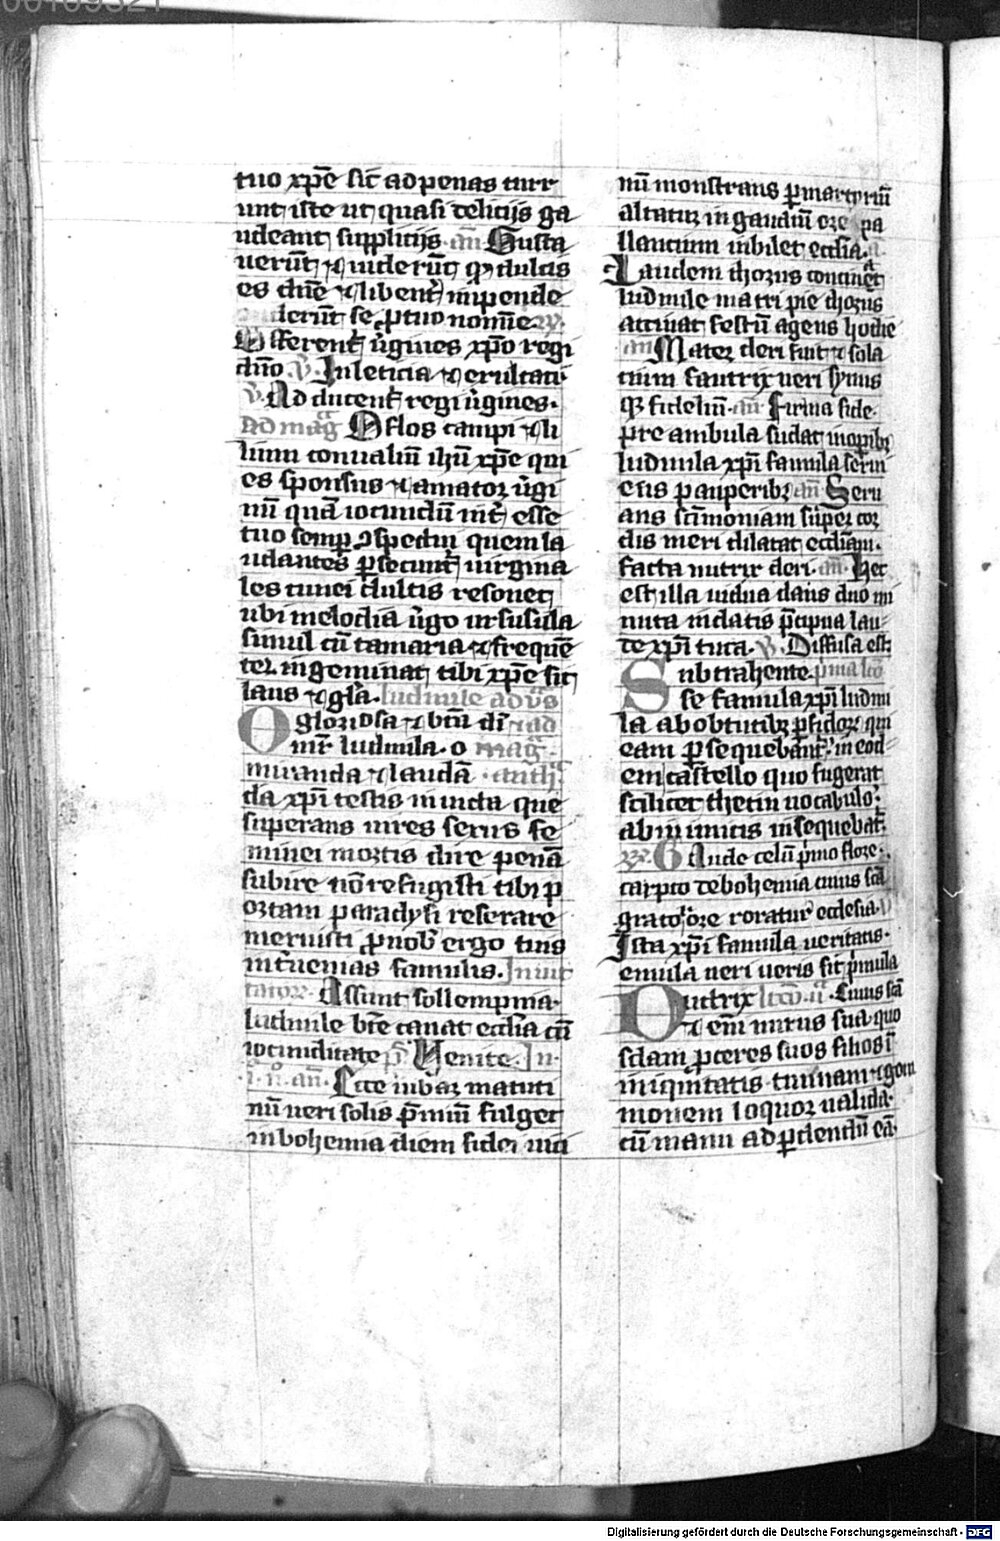 tuo xp̄e sic̄ ad penas curr
unt iste ut quasi delicijs ga
udeant supplicijs an̄ Gusta
uerūt ⁊ uiderūt ꝙ dulcis
es dn̄e ⁊ libent̄ inpende
derūt se ꝓ tuo nomīe
Offerent̄ ỽgines xp̄o regi
dn̄o ꝟ. In leticia ⁊ exultat
ꝟ. Adducent̄ regi ỽgines.
Ad mag̅ O flos campi ⁊ li
lium conualiū ihū xp̄e qui
es sponsus ⁊ amator ỽgi
nū quā iocundū int̄ esse
tuo semꝑ ꝯspectui quem la
udantes ꝑsecunt̄ uirgina
les cunei dulcis resonet
ubi melodia ỽgo ursusula
simul cū tamaria ⁊ frequē
ter ingeminat tibi xp̄e sit
laus ⁊ gl̄a. ludmile ad vꝰs
O gloriosa ⁊ btā dī ad
mr̄ ludmila. o mag̅.
miranda ⁊ laudā anth̄
da xp̄i testis inuicta que
superans uires sexus fe
minei mortis dire penā
subire nō refugisti tibi p
ortam paradysi reserare
meruisti ꝓ nob̄ ergo tuis
int̄uenias famulis. Inuit
tator. Assunt sollempnia
ludmile bt̄e canat eccl̄ia cū
iocunditate p̄s Venite. In
i. n. an̄. Ecce iubar matuti
nū ueri solis p̄miū fulget
in bohemia diem fidei
nū monstrans ꝑ martyriū
altatur in gaudiū
llancium iubilet eccl̄ia.
Laudem chorus concinat
ludmile matri pie chorus
attinat festū agens hodie
an̄ Mater cleri fuit ⁊ sola
cium fautrix ueri
qꝫ fidelium. an̄ Firma fide
p̄ambula sudat inopibꝫ
ludmila xp̄i famula serui
ens pauperibꝫ an̄ Seru
ans scīmoniam super cor
dis meri dilatat eccl̄iam.
facta nutrix cleri. an̄. Hec
est illa uidua dans duo mi
nuta
te xp̄i tuta. ꝟ. Diffusa est
Subtrahente p̄ma lcō
se famula xp̄i ludmi
la ab obtutibꝫ ꝑfidor qui
eam ꝑsequebant̄ in eod
em castello quo fugerat
scilicet thetin uocabulo
ab inimicis insequebat̄.
Gaude celū p̄mo flore
carpto de bohemia cuius scā
grato rore roratur ecclesia
Ista xp̄i famula ueritatis
emula ueri ueris fit p̄mula
Nutrix lcō. ii. Cuius scā
⁊ em̄ nurus sua quo
sdam ꝓceres suos filios
iniquitatis
monem loquor ualida
cū manu ad ꝑdendū eā.
Digitalisierung gefördert durch die Deutsche Forschungsgemeinschaft - DFG